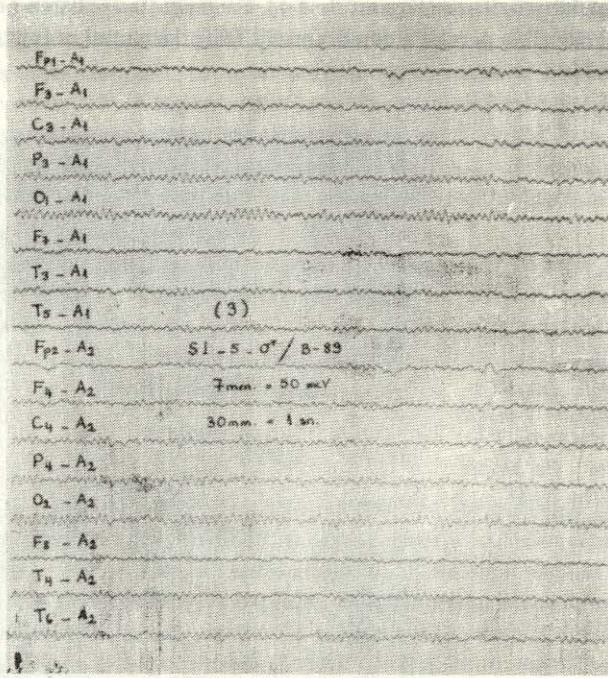 Fp1 - A1
F3 - A1
C3 - A1
P3 - A1
O1 - A1
F7 - A1
T3 - A1
T5 - A1
(3)
Fp2 - A2
SI - 5 - ♂ / B-89
F4 - A2
7mm. = 50 mcV
C4 - A2
30mm. = 1 sn.
P4 - A2
O2 - A2
F8 - A2
T4 - A2
T6 - A2